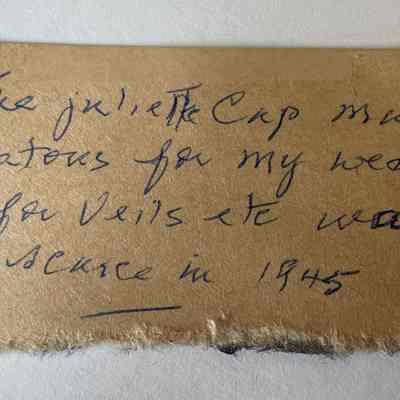 he juliette Cap ma
atons for my wed
for Veils etc wa
scarce in 1945